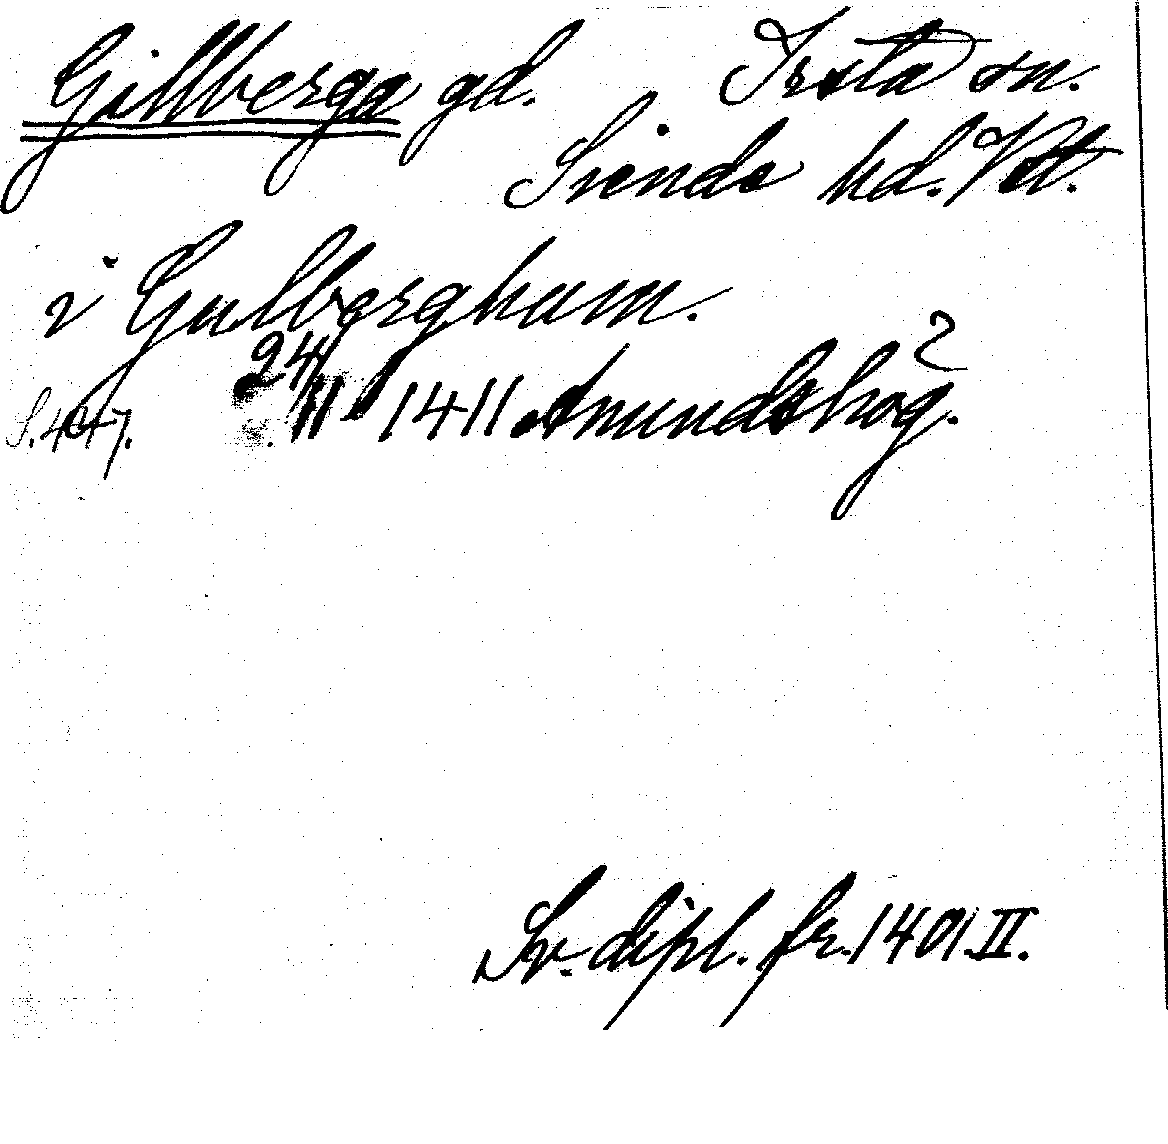 Gillberga gd. Irsta sn.
Siende hd. Vstl.
i Gulberghum.
24/11 1411 Amundshög?
S. 447.
Sv. dipl. fr. 1401 II.